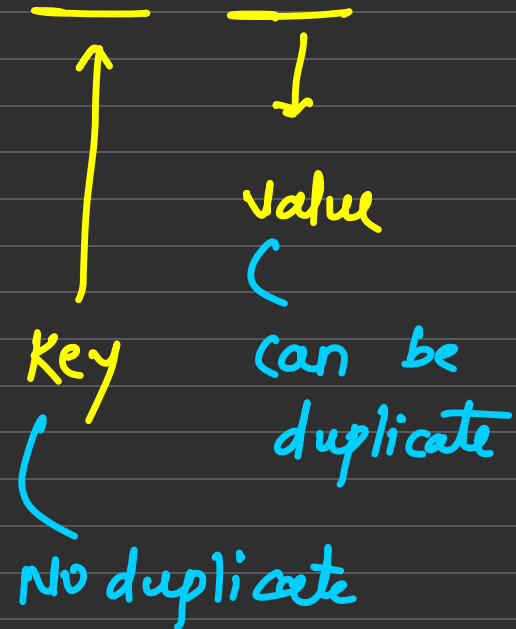 value
Key
can be
duplicate
No duplicate